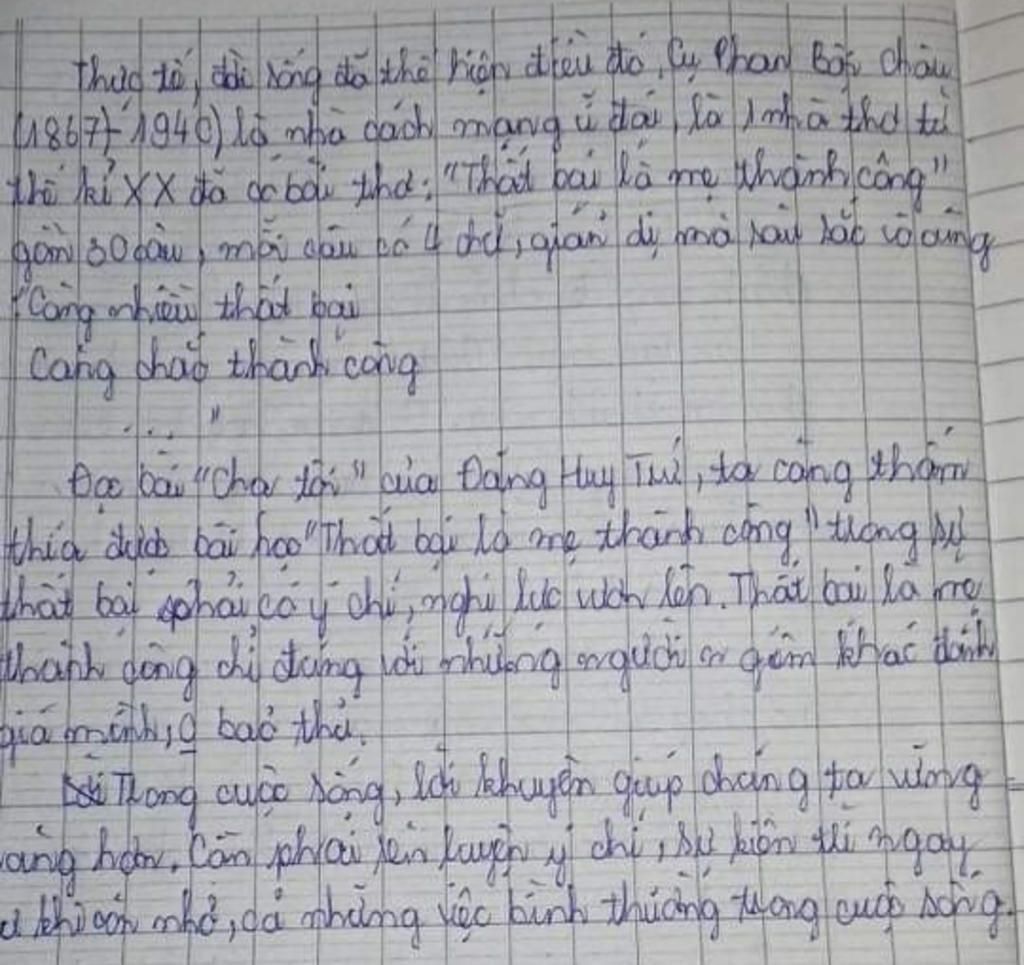 Thực tế, đời sống đã thể hiện điều đó. Cụ Phan Bội Châu
(1867 - 1940) là nhà cách mạng vĩ đại, là 1 nhà thơ từ
thế kỉ XX đã có bài thơ: "Thất bại là mẹ thành công"
gồm 30 câu, mỗi câu có 4 chữ, giản dị mà sâu sắc vô cùng
"Càng nhiều thất bại
Càng chắc thành công
...."
Đọc bài "Cha tôi" của Đặng Huy Trứ, ta càng thấm
thía được bài học "Thất bại là mẹ thành công" trong sự
thất bại phải có ý chí, nghị lực vươn lên. Thất bại là mẹ
thành công chỉ đúng với những người n gâm khắc đánh
giá mình, bảo thủ.
Trong cuộc sống, lời khuyên giúp chúng ta vững
vàng hơn. Cần phải rèn luyện ý chí, sự kiên trì ngay
khi còn nhỏ, cả những việc bình thường trong cuộc sống.